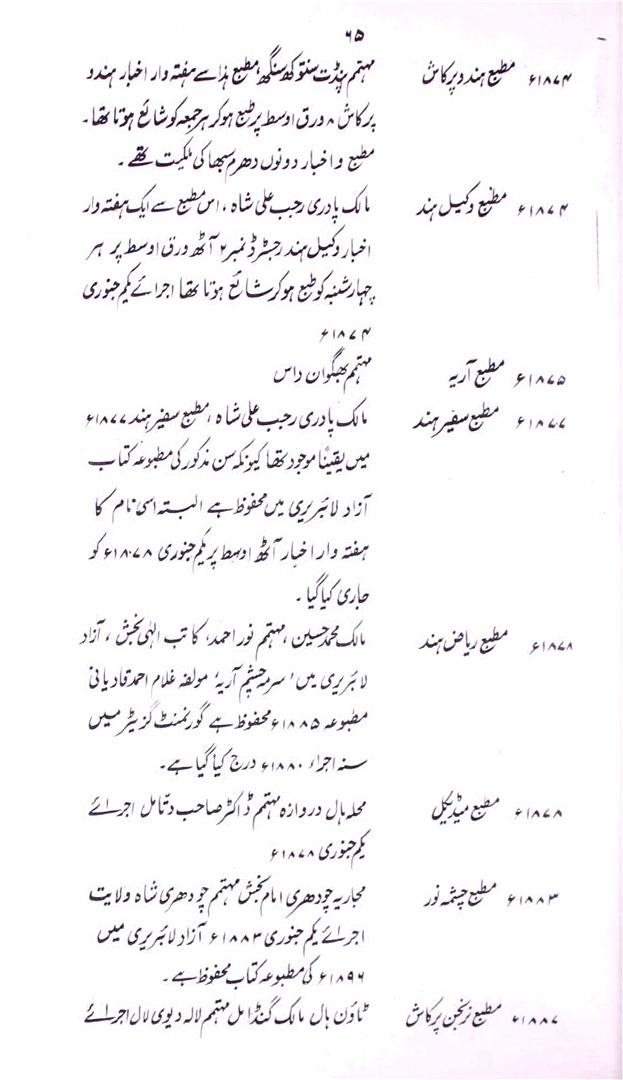 ۶۵
۱۸۷۴ء مطبع ہندو پرکاش مہتمم پنڈت سنتوکھ سنگھ، مطبع ہذا سے ہفتہ وار اخبار ہندو
پرکاش ۸ ورق اوسط پر طبع ہوکر ہر جمعہ کو شائع ہوتا تھا۔
مطبع و اخبار دونوں دھرم سبھا کی ملکیت تھے۔
۱۸۷۴ء مطبع وکیل ہند مالک پادری رجب علی شاہ، اس مطبع سے ایک ہفتہ وار
اخبار وکیل ہند رجسٹرڈ نمبر ۲ آٹھ ورق اوسط پر ہر
چہار شنبہ کو طبع ہوکر شائع ہوتا تھا اجرائے یکم جنوری
۱۸۷۴ء
۱۸۷۵ء مطبع آریہ مہتمم بھگوان داس
۱۸۷۷ء مطبع سفیر ہند مالک پادری رجب علی شاہ، مطبع سفیر ہند ۱۸۷۷ء
میں یقیناً موجود تھا کیونکہ سن مذکور کی مطبوعہ کتاب
آزاد لائبریری میں محفوظ ہے البتہ اسی نام کا
ہفتہ وار اخبار آٹھ اوسط پر یکم جنوری ۱۸۷۸ء کو
جاری کیا گیا۔
۱۸۷۸ء مطبع ریاض ہند مالک محمد حسین، مہتمم نور احمد، کاتب الٰہی بخش، آزاد
لائبریری میں 'سرمہ چشم آریہ' مولفہ غلام احمد قادیانی
مطبوعہ ۱۸۸۵ء محفوظ ہے گورنمنٹ گزیٹر میں
سنہ اجراء ۱۸۸۰ء درج کیا گیا ہے۔
۱۸۷۸ء مطبع میڈیکل محلہ ہال دروازہ مہتمم ڈاکٹر صاحب دتامل اجرائے
یکم جنوری ۱۸۷۸ء
۱۸۸۳ء مطبع چشمہ نور محاریہ چودھری امام بخش مہتمم چودھری شاہ ولایت
اجرائے یکم جنوری ۱۸۸۳ء آزاد لائبریری میں
۱۸۹۶ء کی مطبوعہ کتاب محفوظ ہے۔
۱۸۸۷ء مطبع نرنجن پرکاش ٹاؤن ہال مالک گنڈا مل مہتمم لالہ دیوی لال اجرائے